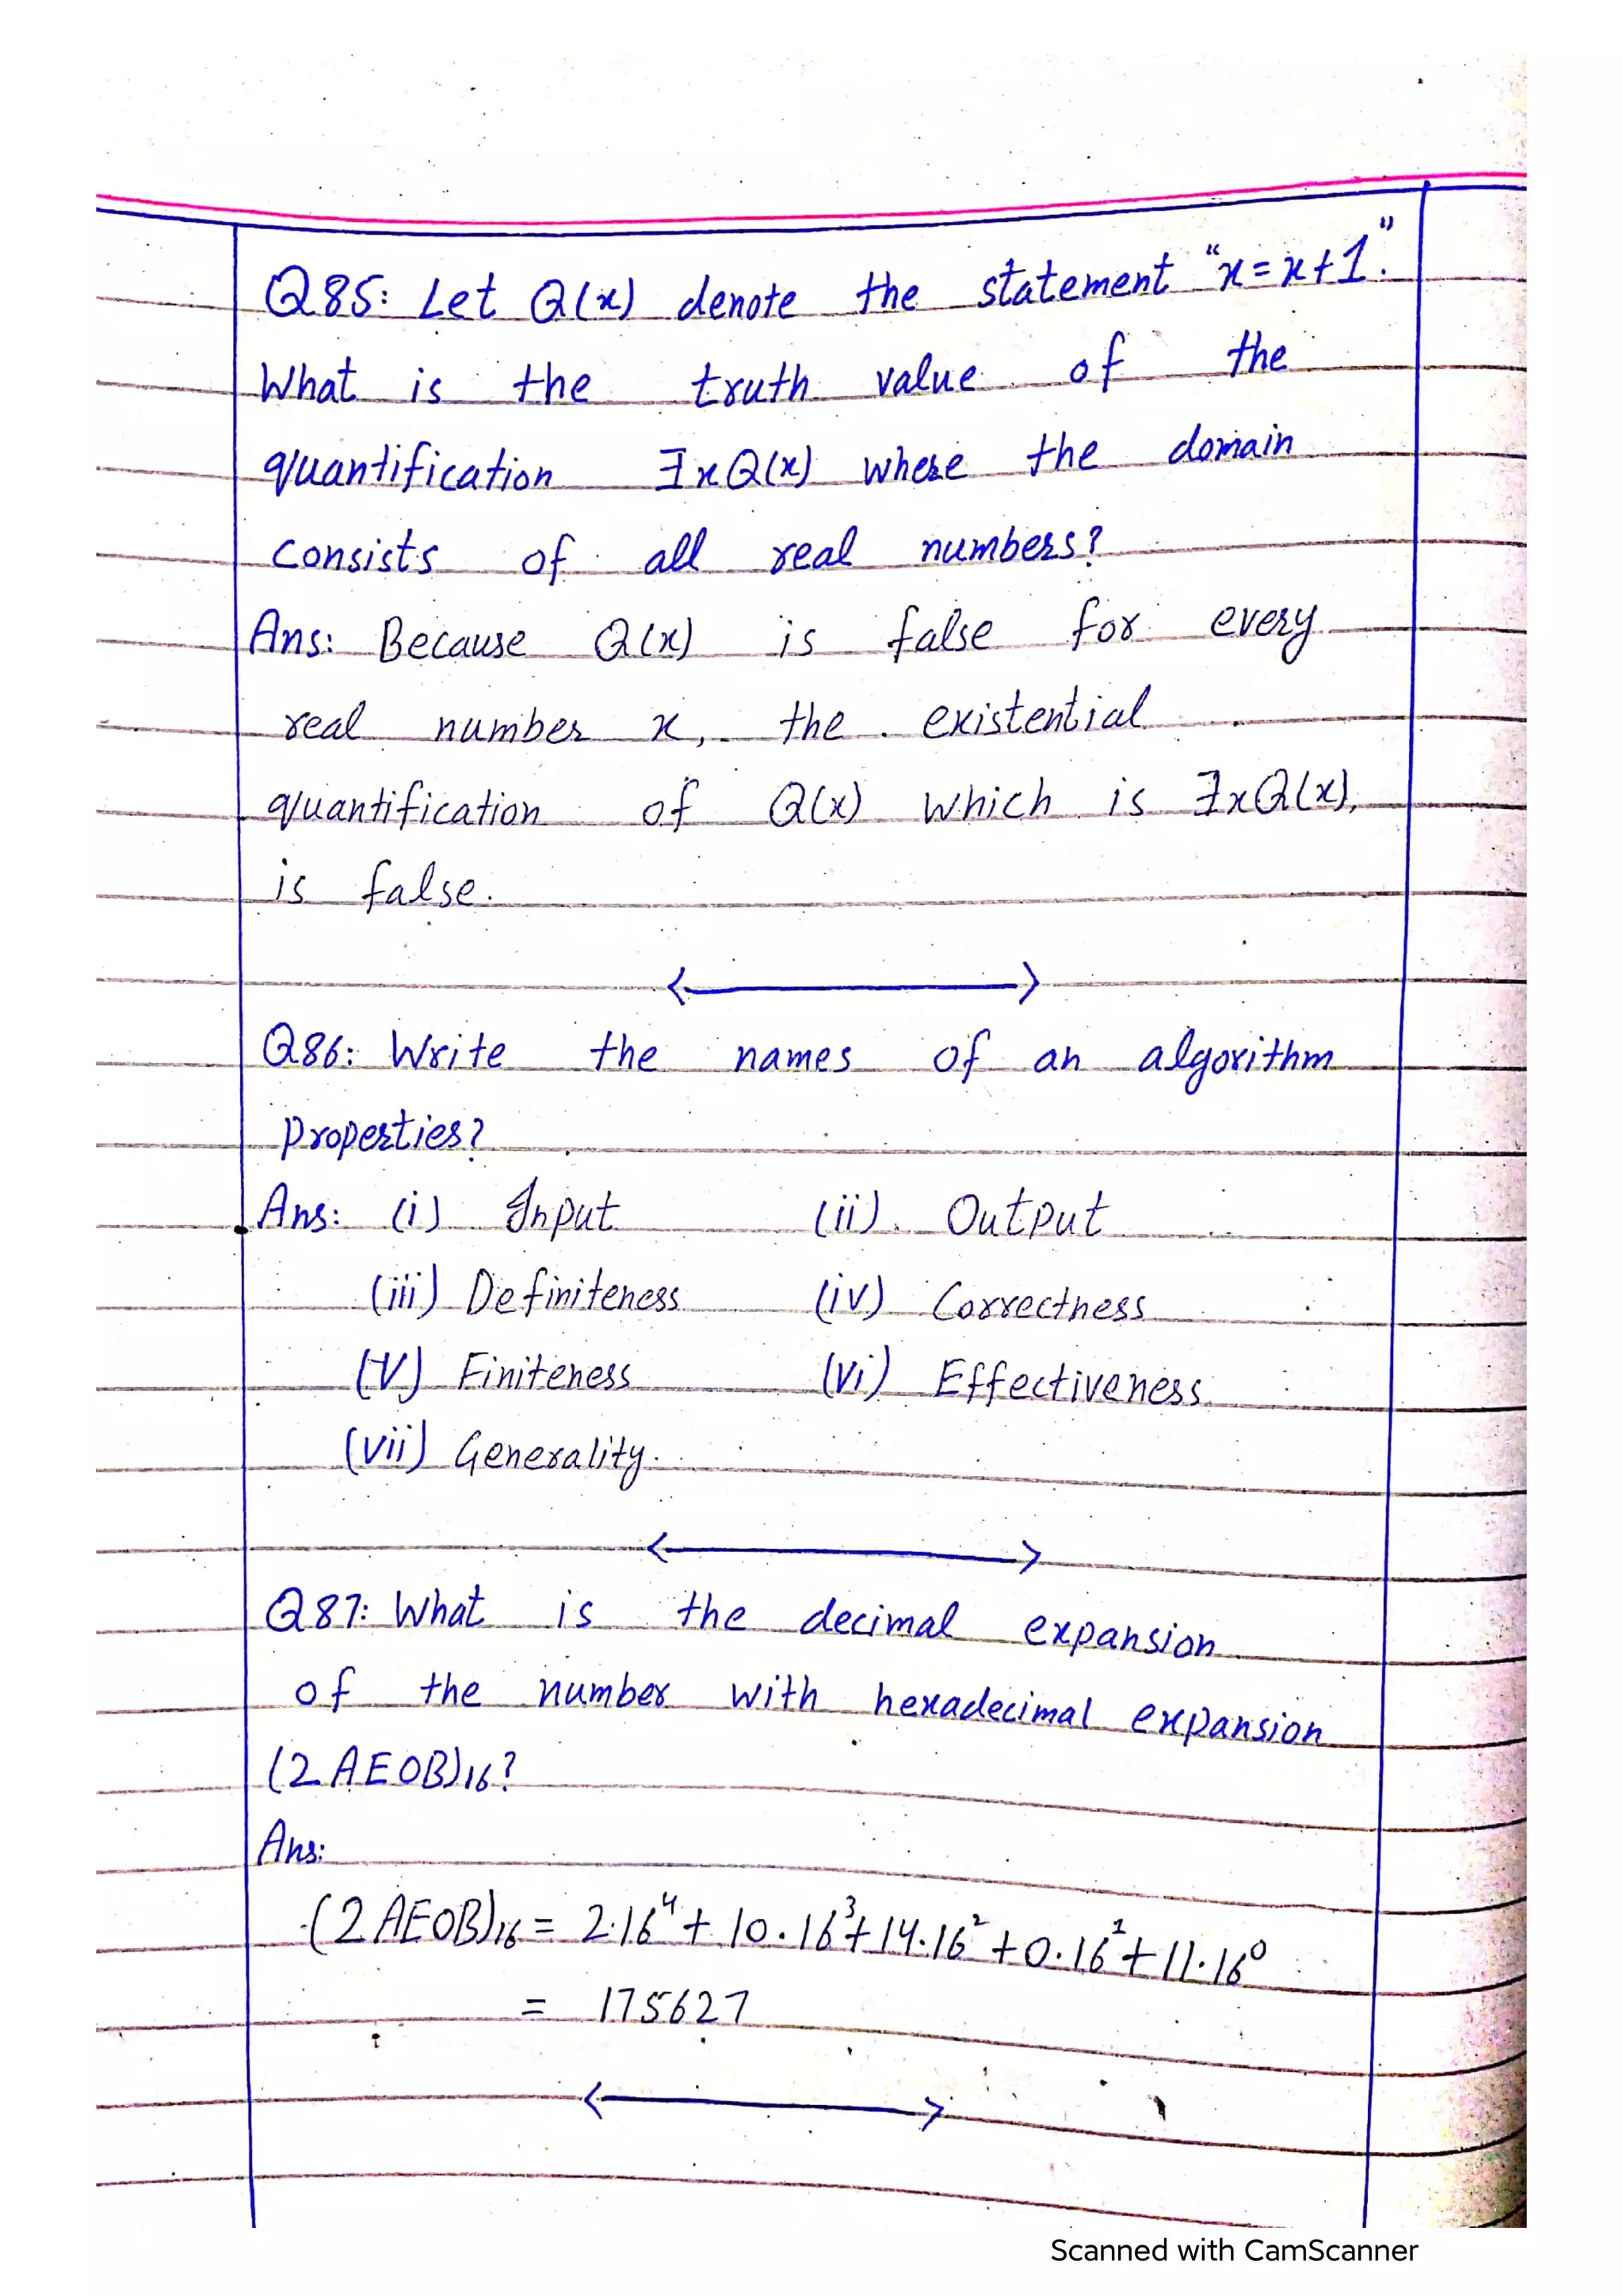 Q85: Let Q(x) denote the statement "x=x+1."
What is the truth value of the
quantification ∃xQ(x) where the domain
consists of all real numbers?
Ans: Because Q(x) is false for every
real number x, the existential
quantification of Q(x) which is ∃xQ(x),
is false.
Q86: Write the names of an algorithm
properties?
Ans: (i) Input (ii) Output
(iii) Definiteness (iv) Correctness
(V) Finiteness (vi) Effectiveness.
(vii) Generality.
Q87: What is the decimal expansion
of the number with hexadecimal expansion
(2AE0B)₁₆?
Ans:
(2AE0B)₁₆ = 2·16⁴ + 10·16³ + 14·16² + 0·16¹ + 11·16⁰
= 175627
Scanned with CamScanner